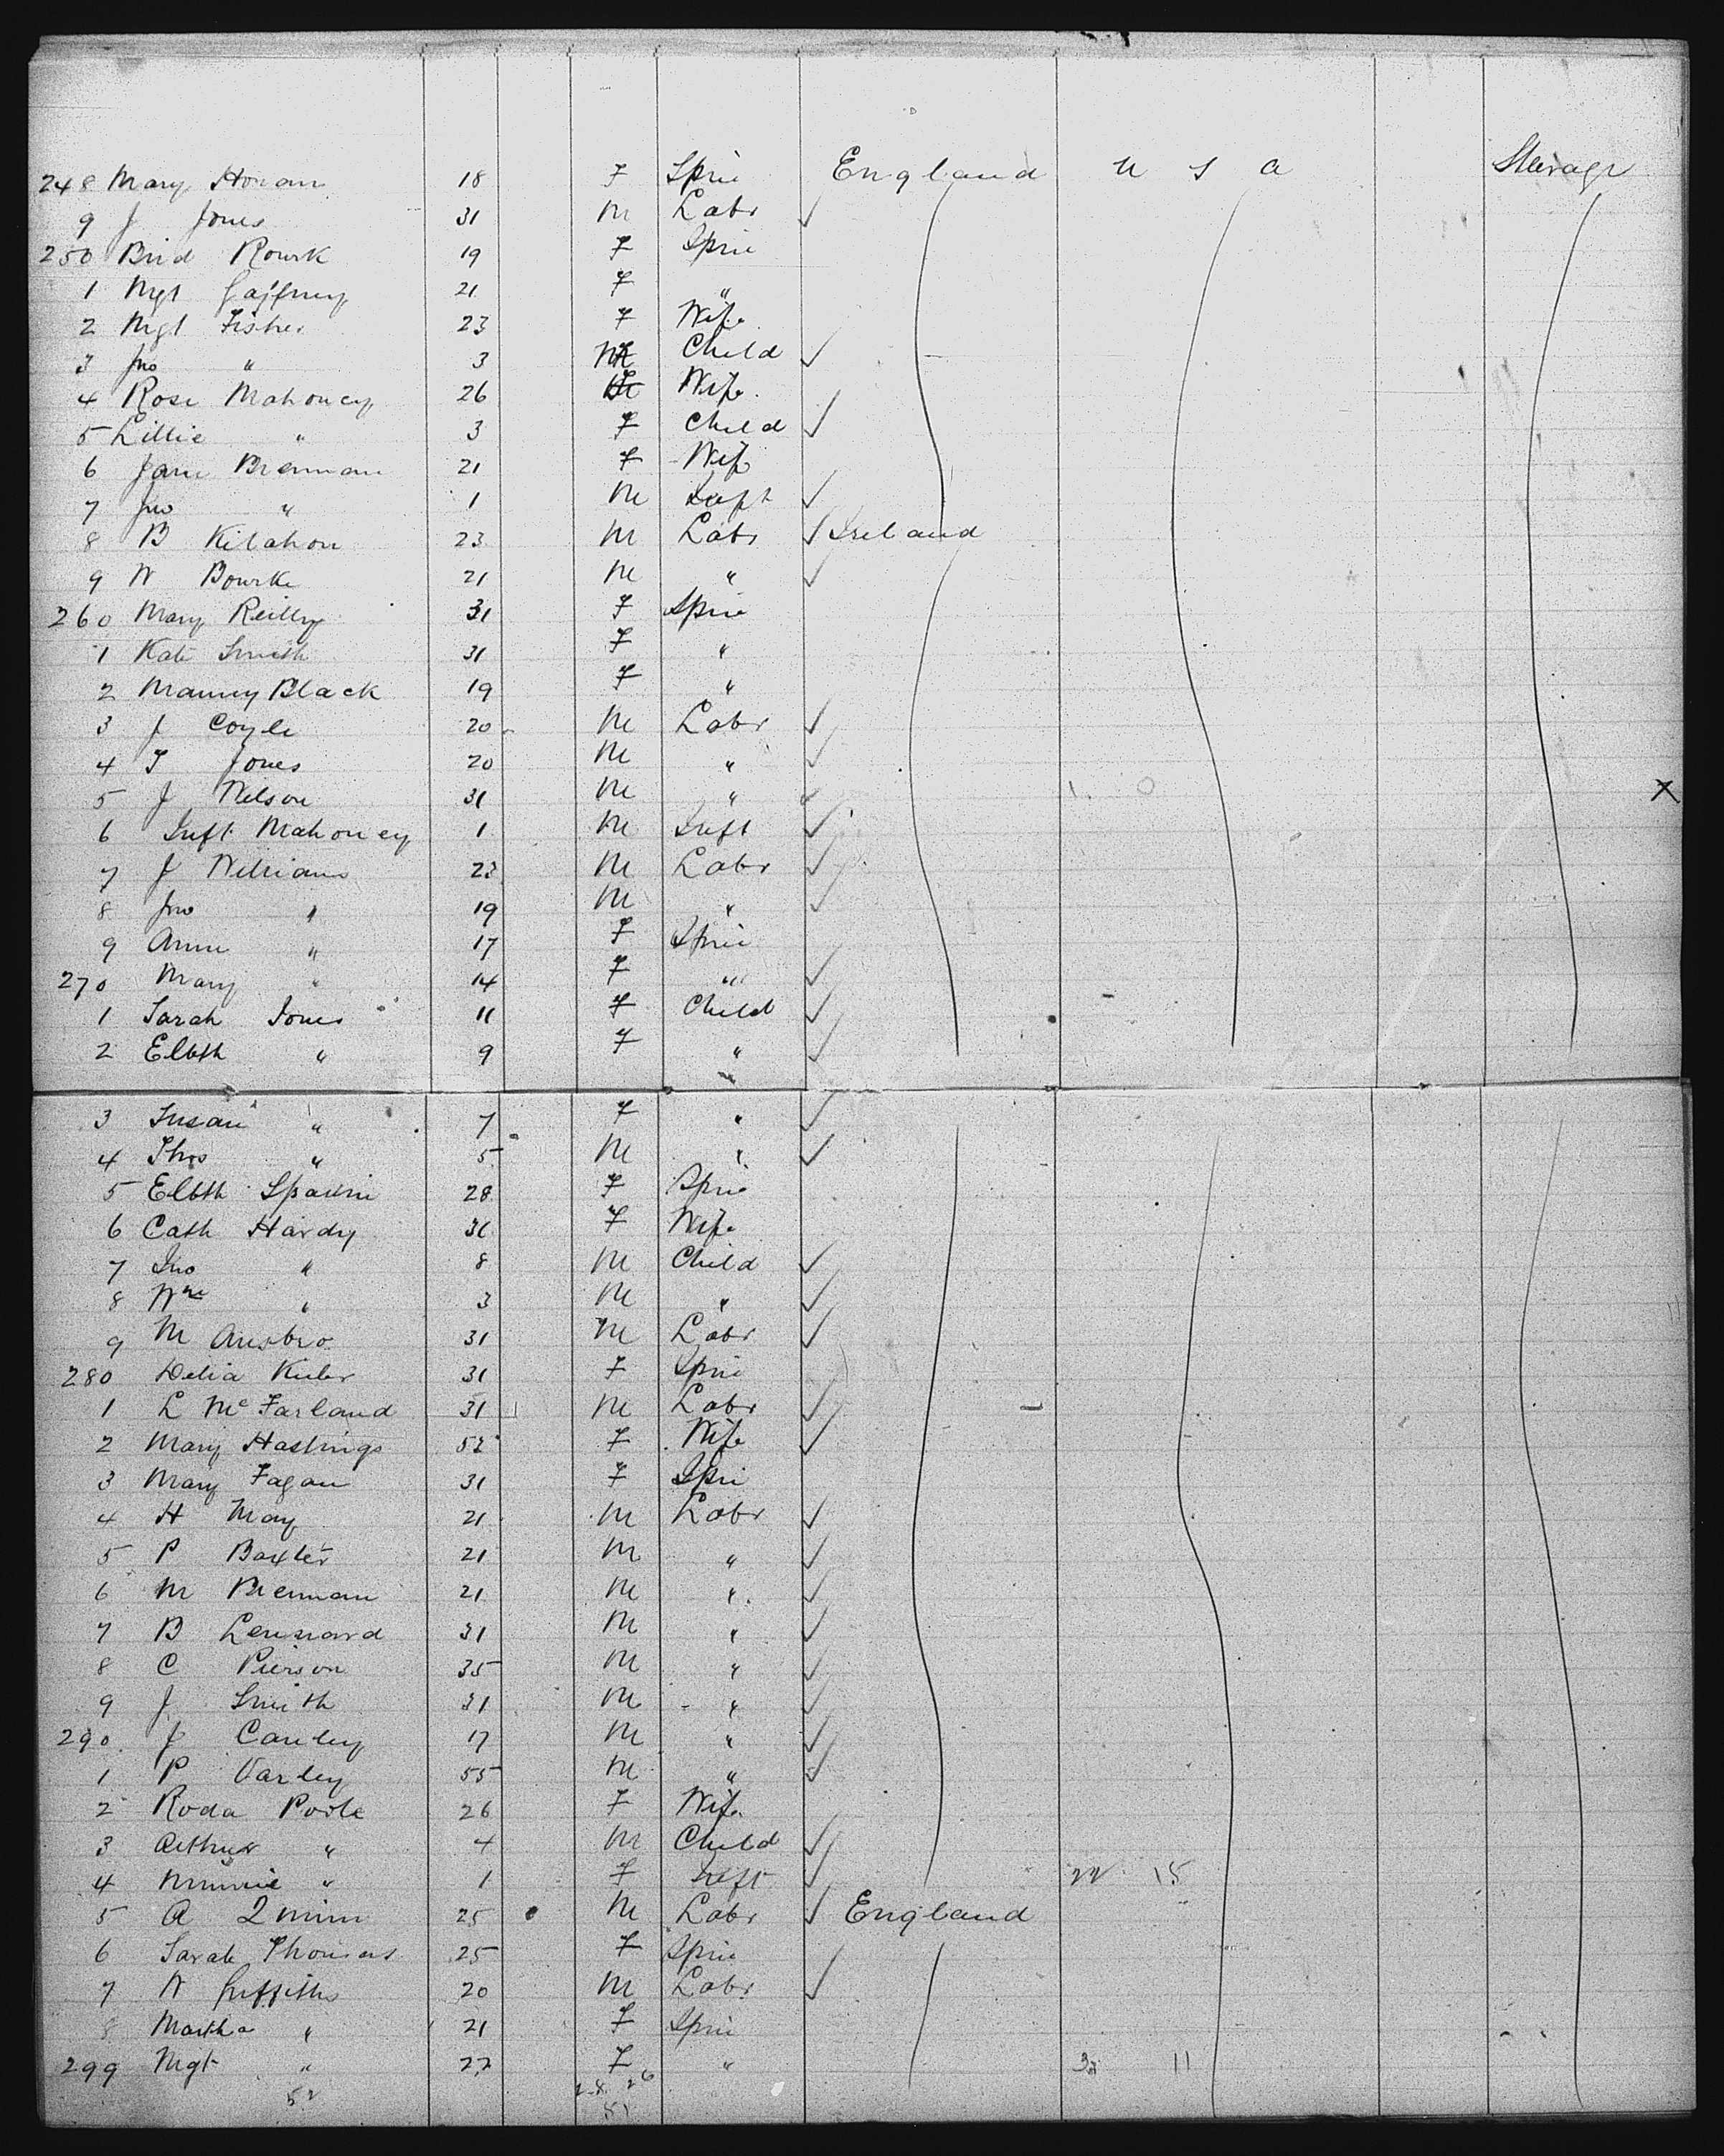 248 Mary Horan 18 F Spin England U S A Steerage
9 J Jones 31 M Labr ✓
250 Brid Rourk 19 F Spin
1 Mgt Gaffney 21 F "
2 Mgt Fisher 23 F Wife
3 Jno " 3 M Child ✓
4 Rose Mahoney 26 F Wife
5 Lillie " 3 F Child ✓
6 Jane Brennan 21 F Wife
7 Jno " 1 M Inft ✓
8 B Kilahon 23 M Labr ✓ Ireland
9 W Bourke 21 M " ✓
260 Mary Reilly 31 F Spin
1 Kate Smith 31 F "
2 Manny Black 19 F "
3 J Coyle 20 M Labr ✓
4 T Jones 20 M " ✓
5 J Wilson 31 M " ✓ X
6 Inft Mahoney 1 M Inft ✓
7 J William 23 M Labr ✓
8 Jno " 19 M " ✓
9 Anne " 17 F Spin
270 Mary " 14 F " ✓
1 Sarah Jones 11 F Child ✓
2 Elbth " 9 F " ✓
3 Susan " 7 F " ✓
4 Thos " 5 M " ✓
5 Elbth 28 F Spin
6 Cath Hardy 31 F Wife
7 Jno " 8 M Child ✓
8 Wm " 3 M " ✓
9 M Ansbro 31 M Labr ✓
280 Delia 31 F Spin
1 L McFarland 31 M Labr ✓
2 Mary Hastings 52 F Wife ✓
3 Mary Fagan 31 F Spin
4 H May 21 M Labr ✓
5 P Baxter 21 M " ✓
6 M Brennan 21 M " ✓
7 B Lennard 31 M " ✓
8 C Pierson 35 M " ✓
9 J Smith 31 M " ✓
290 J Cauley 17 M " ✓
1 P Varley 55 M " ✓
2 Roda Poole 26 F Wife
3 Arthur " 4 M Child ✓
4 Minnie " 1 F Inft ✓ 22 15
5 A Quinn 25 M Labr ✓ England
6 Sarah Thomas 25 F Spin
7 W Griffiths 20 M Labr ✓
8 Martha " 21 F Spin
299 Mgt " 22 F " 11
52 28 26